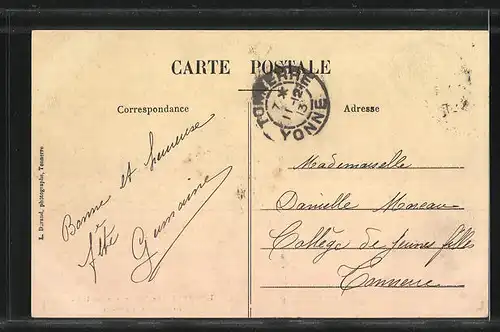 CARTE POSTALE
TONNERRE
7 *
11 -12
13
YONNE
Correspondance
Adresse
L. Durand, photographe, Tonnerre.
Bonne et heureuse
fête
Germaine
Mademoiselle
Danielle Moreau
Collège de jeunes filles
Tonnerre